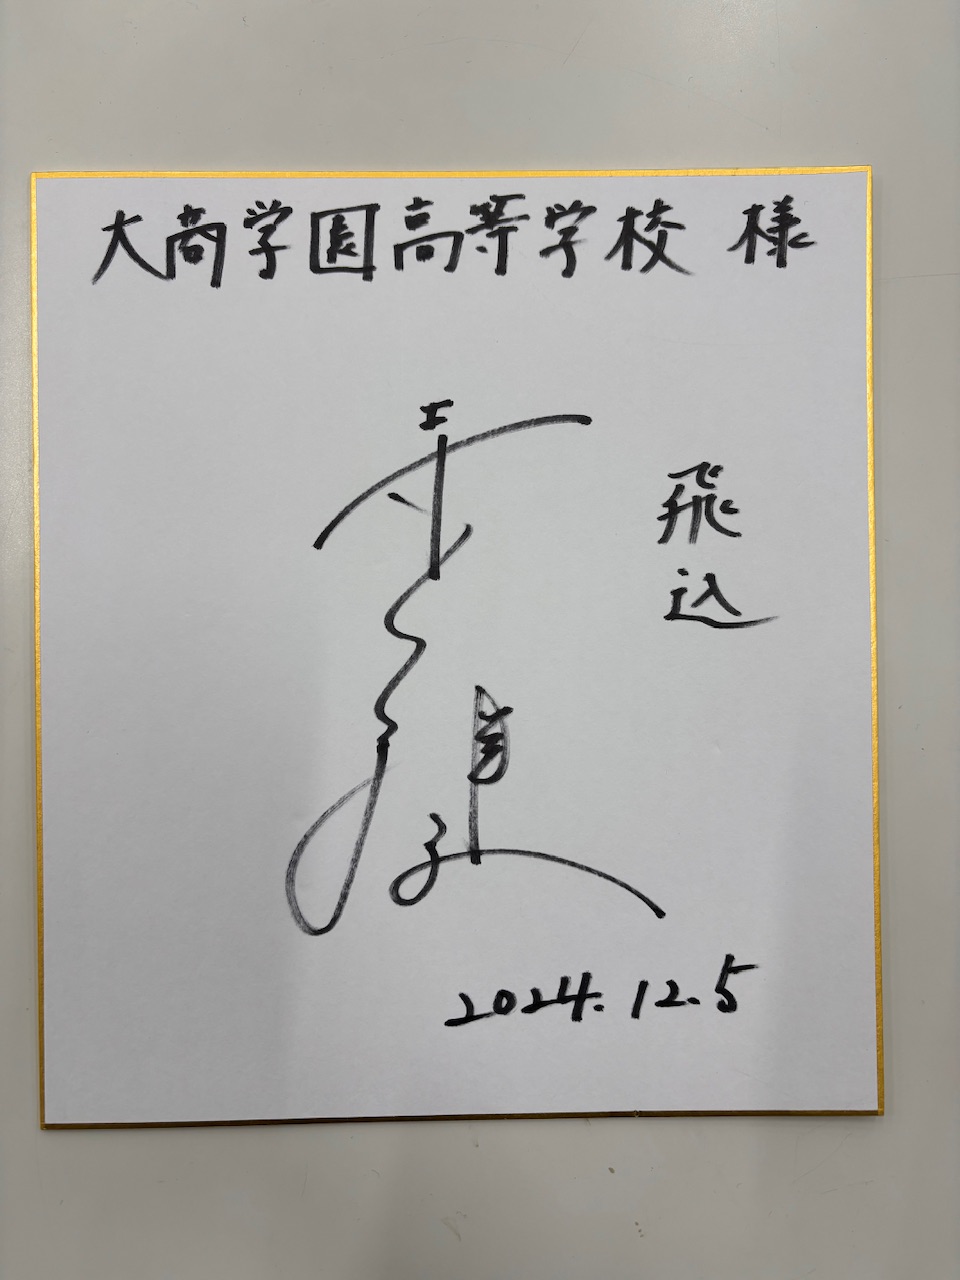 大商学園高等学校 様
飛込
2024.12.5